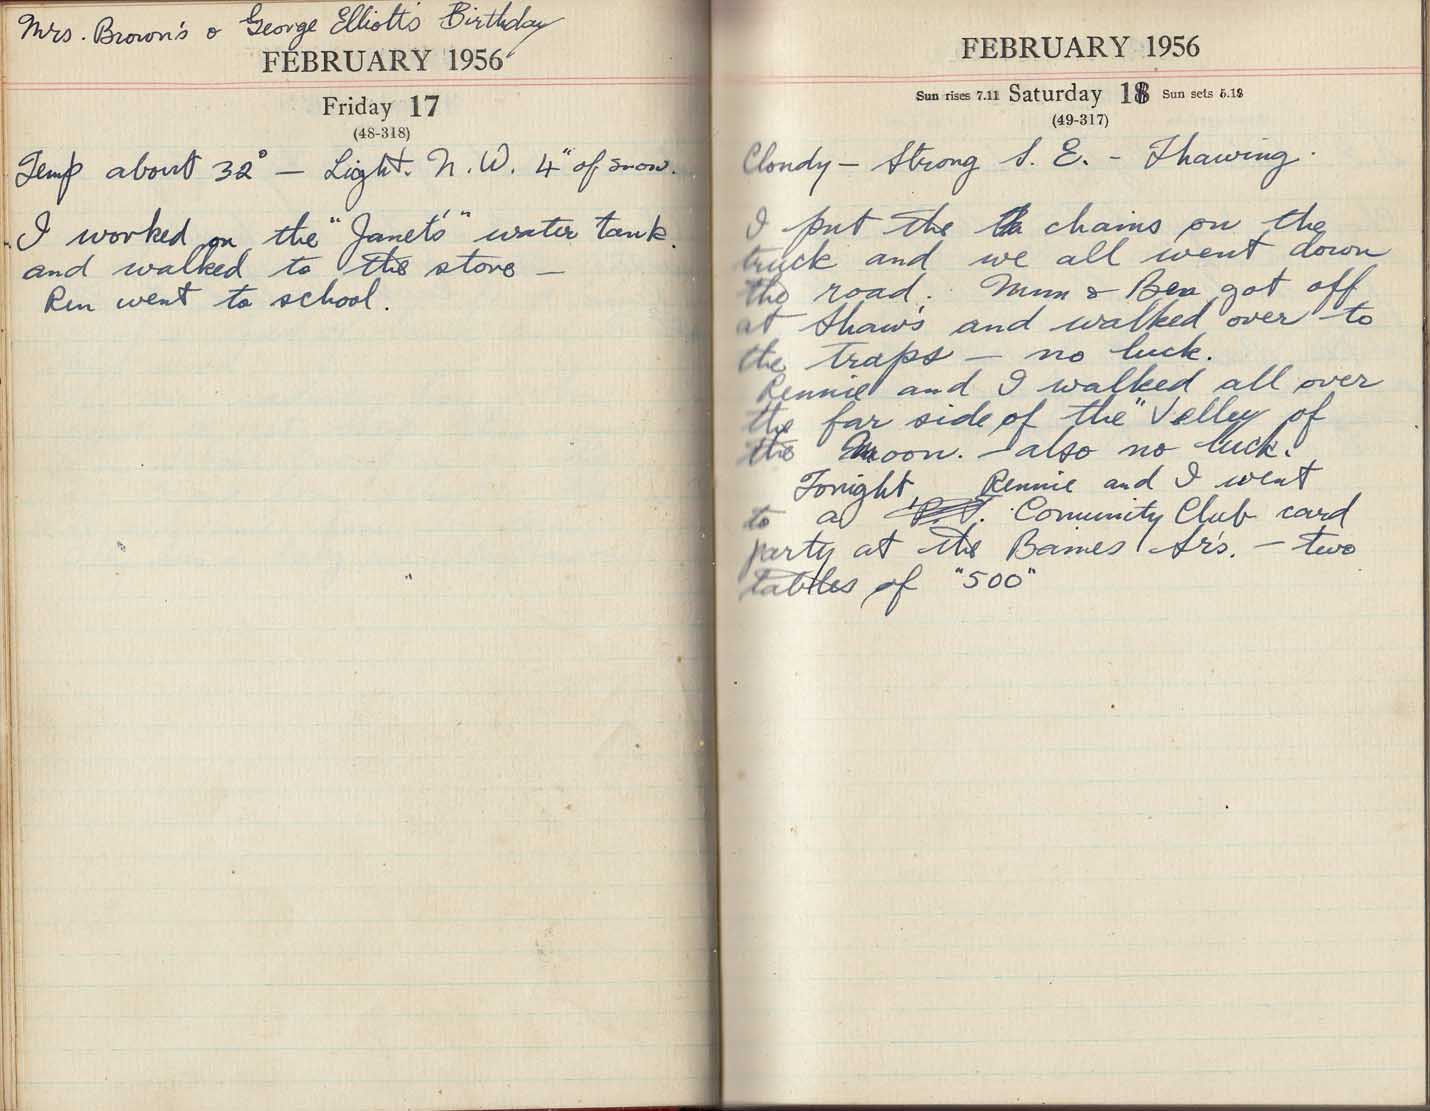 Mrs. Brown's & George Elliott's Birthday
FEBRUARY 1956
Friday 17
(48-318)
Temp about 32° — Light. N. W. 4" of snow.
I worked on the "Janet's" water tank.
and walked to the store —
Ren went to school.
FEBRUARY 1956
Sun rises 7.11 Saturday 18 Sun sets 5.18
(49-317)
Cloudy — Strong S. E. - Thawing.
I put the chains on the
truck and we all went down
the road. Mum & Ben got off
at Shaw's and walked over to
the traps — no luck.
Rennie and I walked all over
the far side of the "Velley of
the Moon. — also no luck.
Tonight, Rennie and I went
to a Comunity Club card
party at the Bames Sr's. — two
tables of "500"